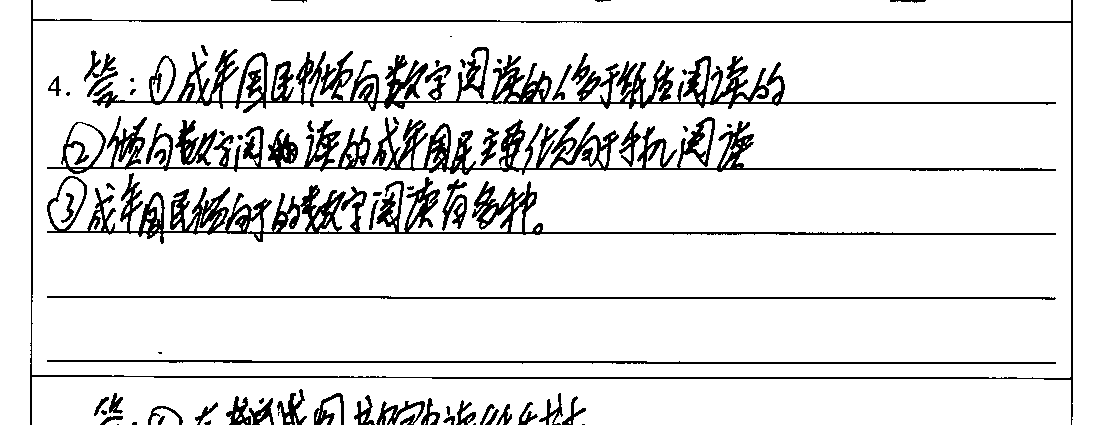 4. 答：①成年国民中倾向数字阅读的人多于纸质阅读的
②倾向数字阅读的成年国民主要倾向于手机阅读
③成年国民倾向于的数字阅读有多种。
答：①在